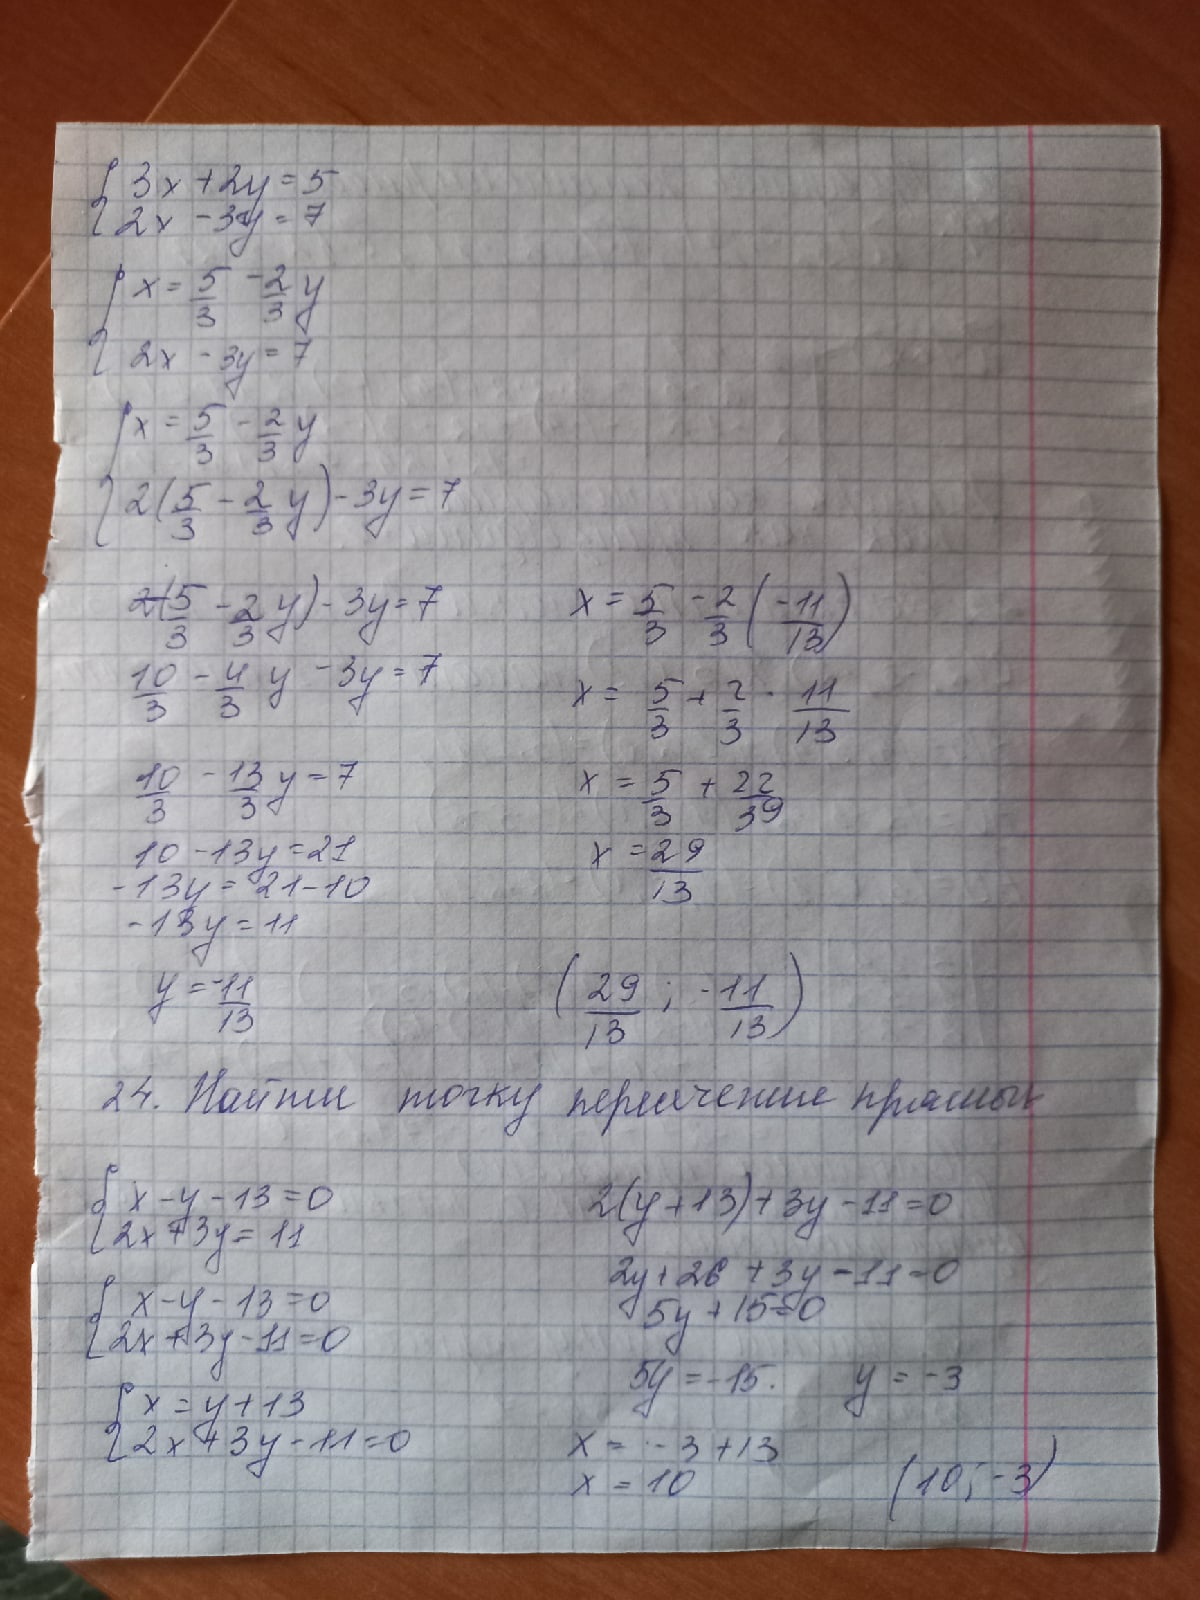 3x + 2y = 5
2x - 3y = 7
x = 5/3 - 2/3 y
2x - 3y = 7
x = 5/3 - 2/3 y
2(5/3 - 2/3 y) - 3y = 7
2(5/3 - 2/3 y) - 3y = 7
10/3 - 4/3 y - 3y = 7
10/3 - 13/3 y = 7
10 - 13y = 21
-13y = 21 - 10
-13y = 11
y = -11/13
x = 5/3 - 2/3 (-11/13)
x = 5/3 + 2/3 · 11/13
x = 5/3 + 22/39
x = 29/13
(29/13 ; -11/13)
24. Найти точку пересечение прямых
x - y - 13 = 0
2x + 3y = 11
x - y - 13 = 0
2x + 3y - 11 = 0
x = y + 13
2x + 3y - 11 = 0
2(y + 13) + 3y - 11 = 0
2y + 26 + 3y - 11 = 0
5y + 15 = 0
5y = -15. y = -3
x = -3 + 13
x = 10 (10; -3)